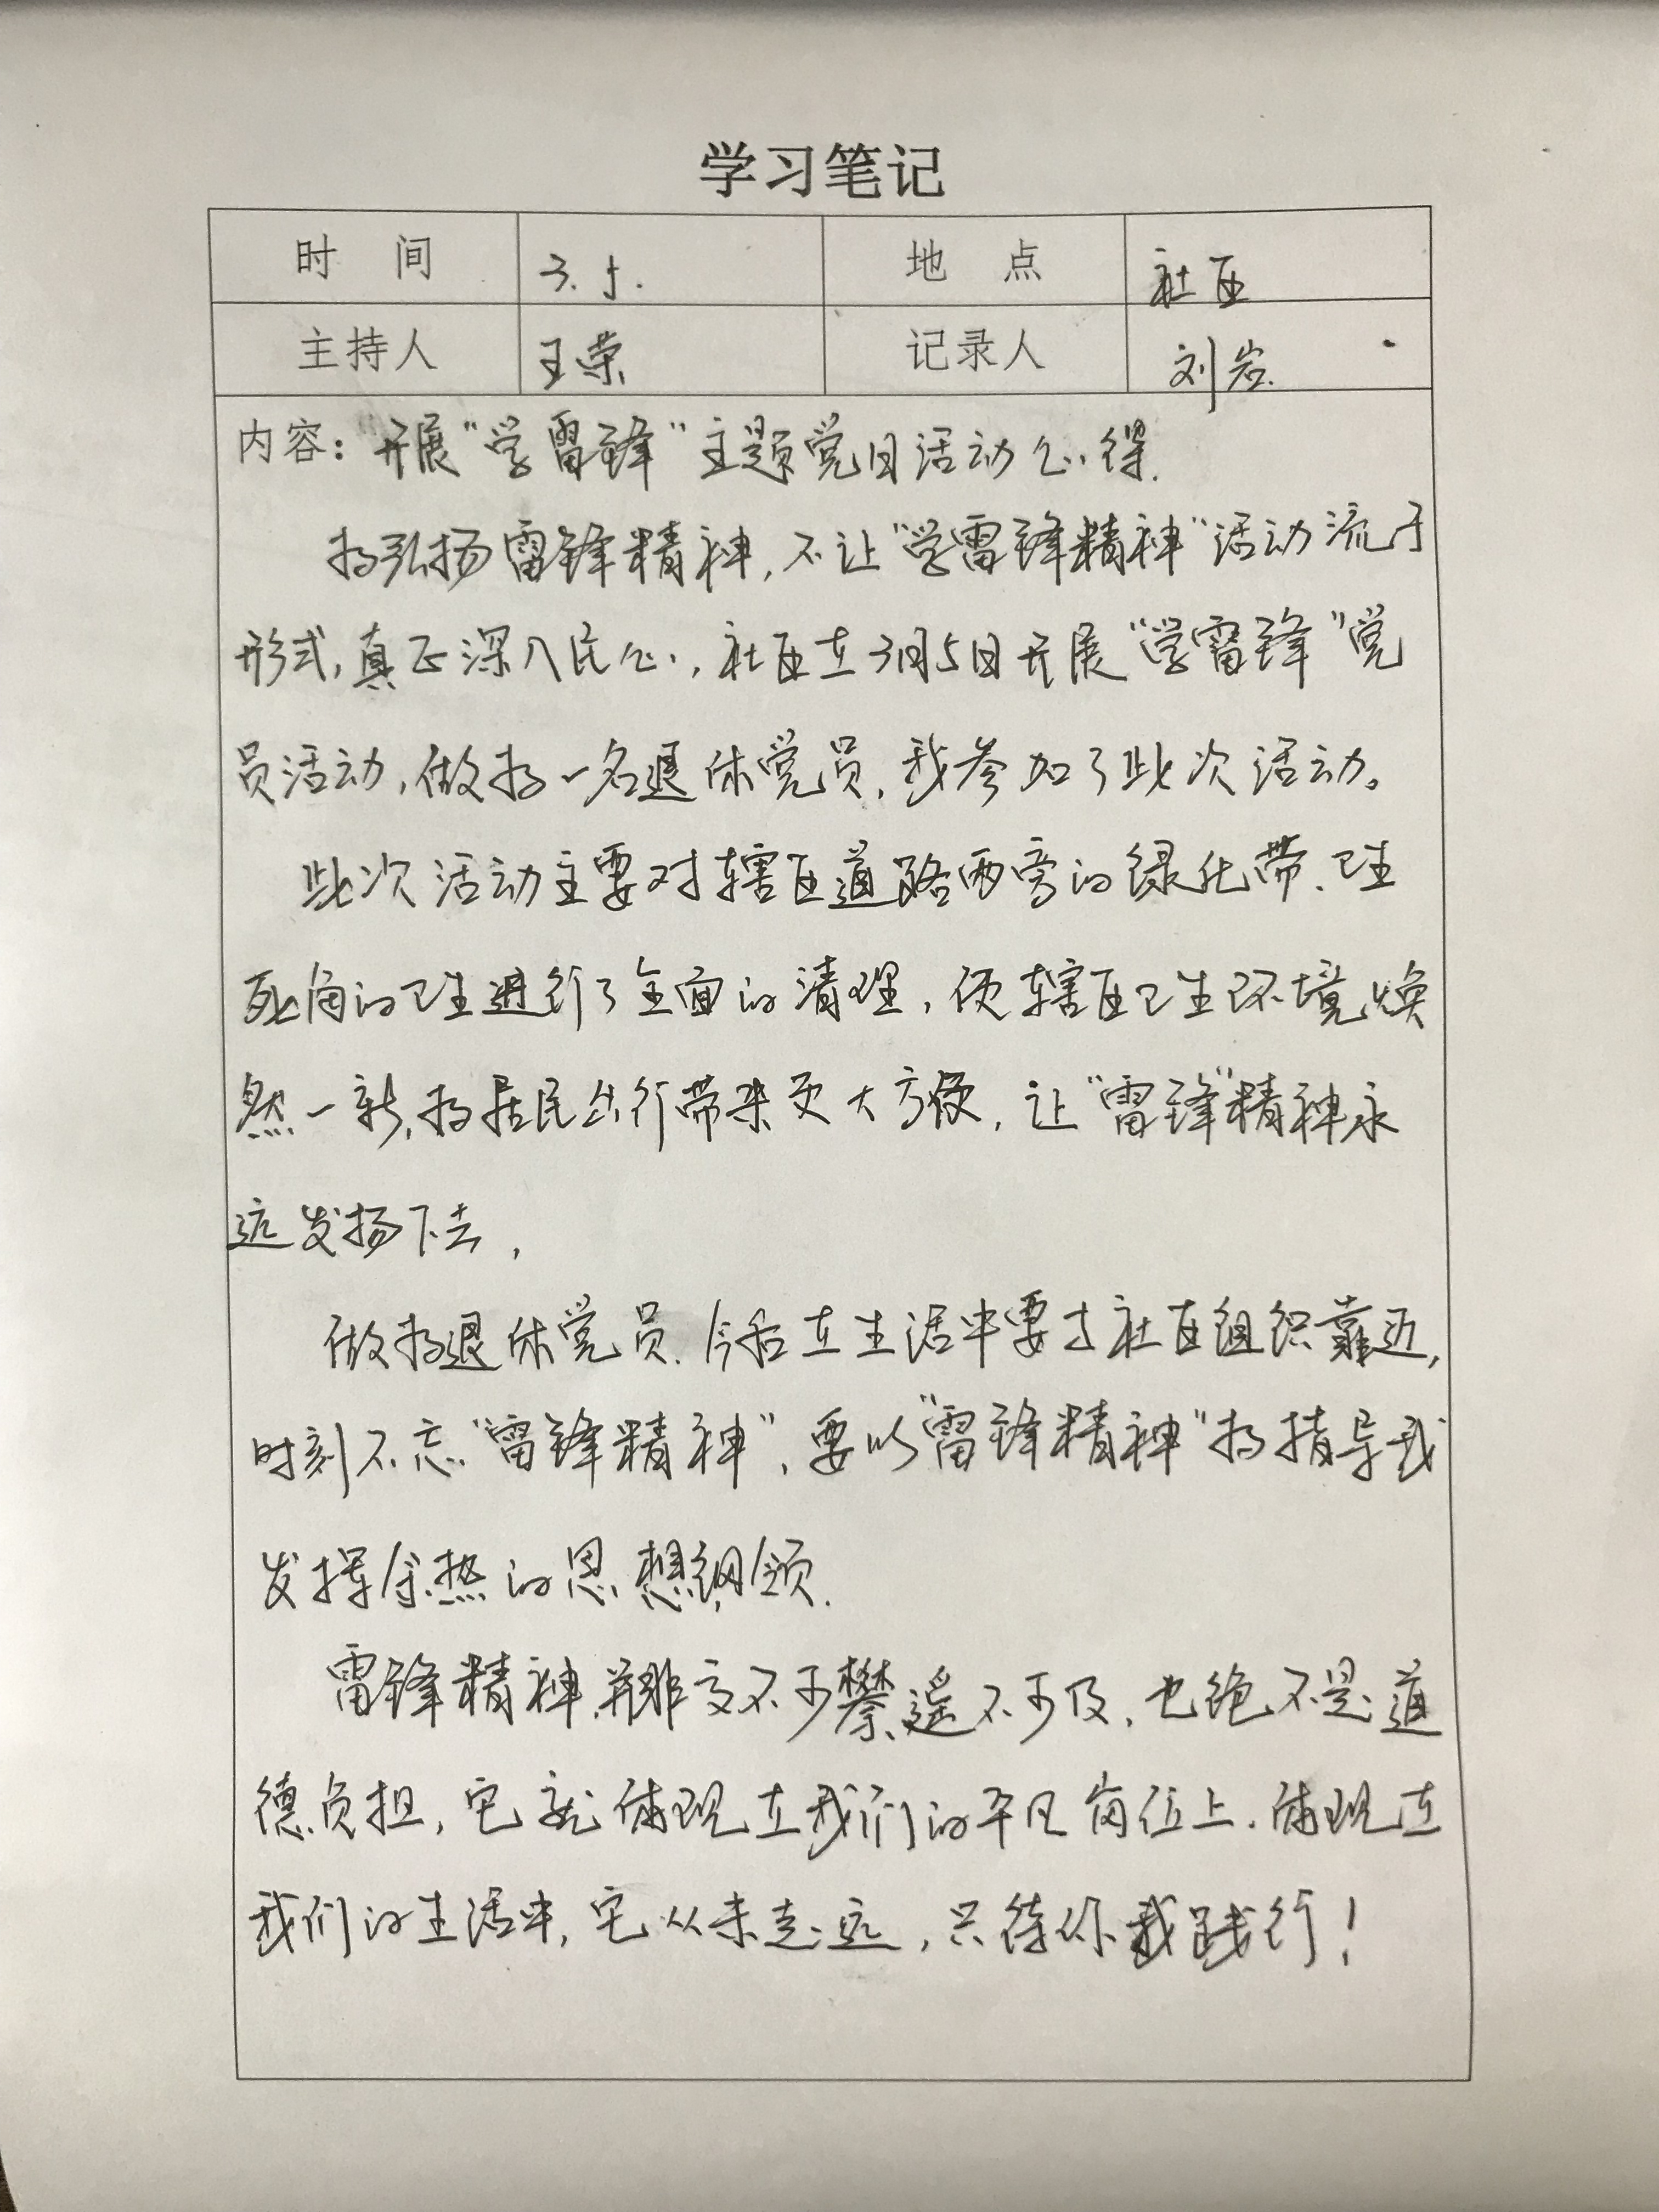 学习笔记
时间 3.5. 地点 社区
主持人 王荣 记录人 刘岩.
内容：开展“学雷锋”主题党日活动心得.
为弘扬雷锋精神,不让“学雷锋精神”活动流于
形式,真正深入民心,社区在3月5日开展“学雷锋”党
员活动,做为一名退休党员,我参加了此次活动。
此次活动主要对辖区道路两旁的绿化带、卫生
死角的卫生进行了全面的清理,使辖区卫生环境焕
然一新,为居民出行带来更大方便,让“雷锋”精神永
远发扬下去,
做为退休党员.今后在生活中要与社区组织靠近,
时刻不忘“雷锋精神”,要以“雷锋精神”为指导我
发挥余热的思想纲领.
雷锋精神,并非高不可攀、遥不可及,也绝不是道
德负担,它就体现在我们的平凡岗位上.体现在
我们的生活中,它从未走远,只待你我践行!